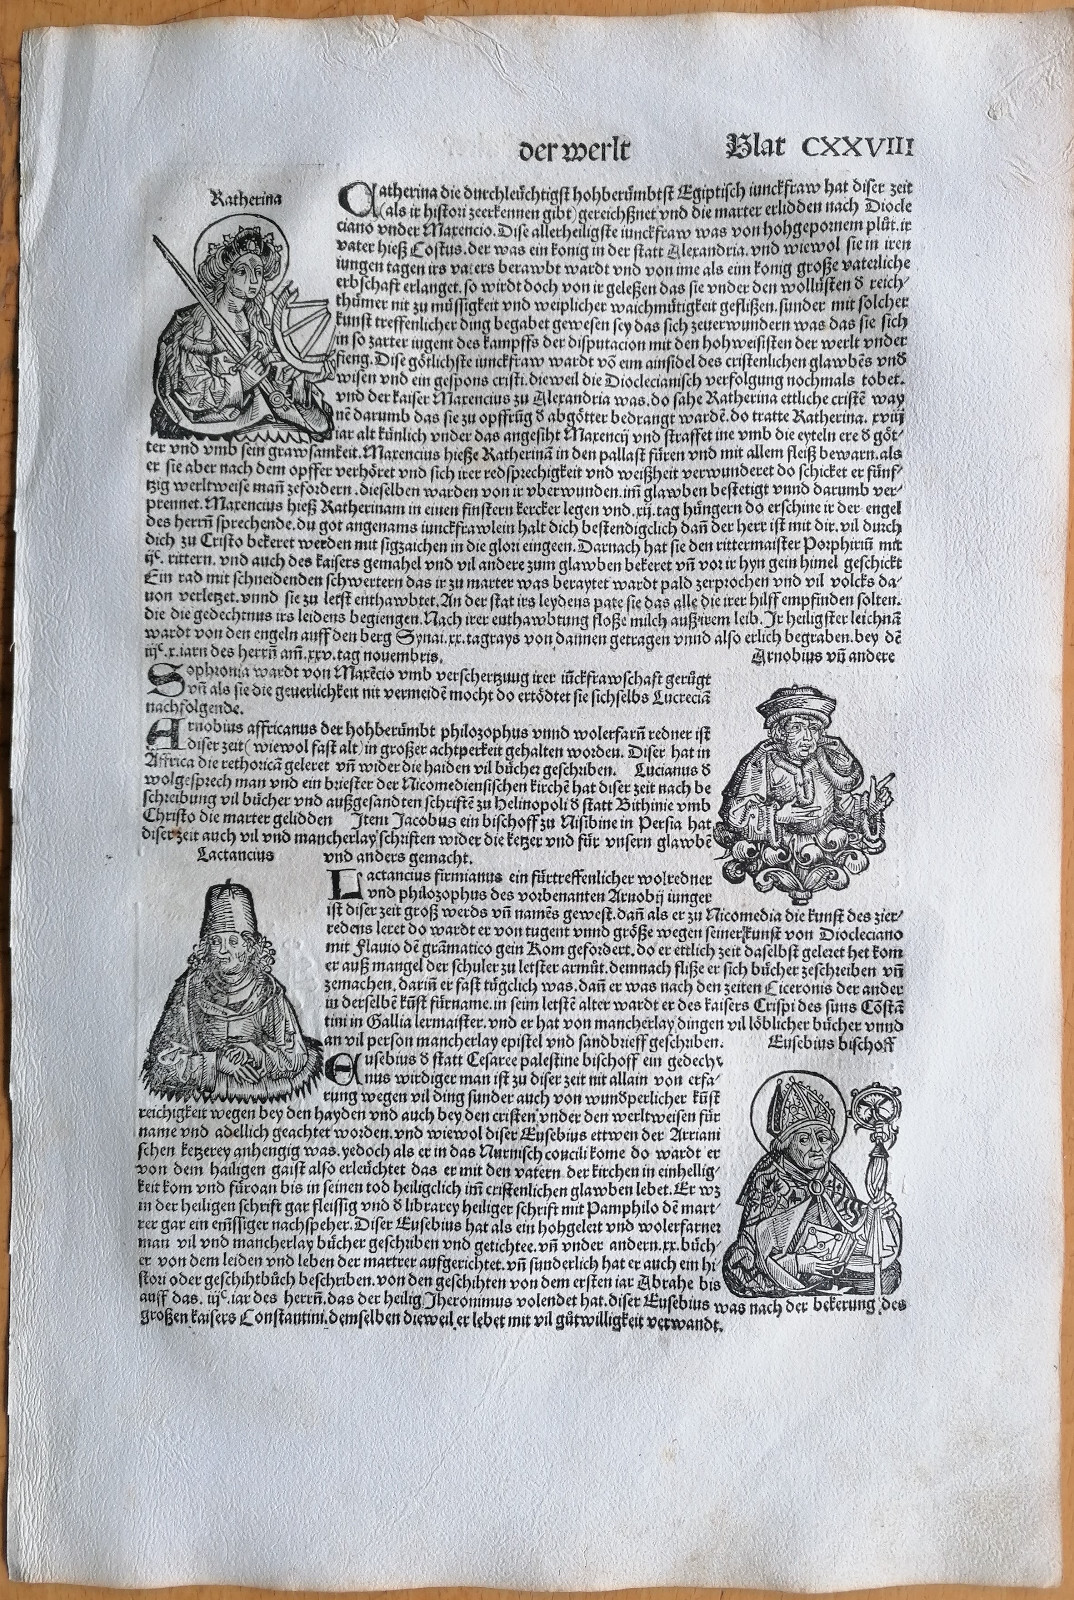 der werlt
Blat CXXVIII
Katherina
Catherina die durchleüchtigst hohberümbtst Egiptisch iunckfraw hat diser zeit
(als ir histori zeerkennen gibt) gereichßnet vnd die marter erlidden nach Diocle
ciano vnder Maxencio. Dise allerheiligste iunckfraw was von hohgepornem plůt. ir
vater hieß Costus. der was ein konig in der statt Alexandria. vnd wiewol sie in iren
iungen tagen irs vaters berawbt wardt vnd von ime als eim konig große vaterliche
erbschaft erlanget. so wirdt doch von ir gelesen das sie vnder den wollüsten d̕ reich/
thümer nit zu müssigkeit vnd weiplicher waichmůtigkeit geflißen. sunder mit solcher
kunst treffenlicher ding begabet gewesen sey das sich zeuerwundern was das sie sich
in so zarter iugent des kampffs der disputacion mit den hohweisisten der werlt vnder
fieng. Dise götlichste iunckfraw wardt vō eim ainsidel des cristenlichen glawbēs vnd
wisen vnd ein gespons cristi. dieweil die Dioclecianisch verfolgung nochmals tobet.
vnd der kaiser Maxencius zu Alexandria was. do sahe Katherina ettliche cristē way
nē darumb das sie zu opffrūg d̕ abgötter bedrangt wardē. do tratte Katherina. xviij
iar alt künlich vnder das angesiht Maxencij vnd straffet ine vmb die eyteln ere d̕ göt/
ter vnd vmb sein grawsamkeit. Maxencius hieße Katherinā in den pallast füren vnd mit allem fleiß bewarn. als
er sie aber nach dem opffer verhöret vnd sich irer redsprechigkeit vnd weißheit verwunderet do schicket er fünf/
tzig werltweise mañ zefordern. dieselben warden von ir vberwunden. im̄ glawben bestetigt vnnd darumb ver/
prennet. Maxencius hieß Katherinam in einen finstern kercker legen vnd. xij. tag hüngern do erschine ir der engel
des herrñ sprechende. du got angenams iunckfrawlein halt dich bestendigclich dañ der herr ist mit dir. vil durch
dich zu Cristo bekeret werden mit sigzaichen in die glori eingeen. Darnach hat sie den rittermaister Porphiriū mit
ijᶜ. rittern. vnd auch des kaisers gemahel vnd vil andere zum glawben bekeret vñ vor ir hyn gein himel geschickt
Ein rad mit schneidenden schwertern das ir zu marter was beraytet wardt pald zerprochen vnd vil volcks da/
uon verletzet. vnnd sie zu letst enthawbtet. An der stat irs leydens pate sie das alle die irer hilff empfinden solten.
die die gedechtnus irs leidens begiengen. Nach irer enthawbtung floße milch auß irem leib. Ir heiligster leichnā
wardt von den engeln auff den berg Synai. xx. tagrays von dannen getragen vnnd also erlich begraben. bey dē
iijᶜ. x. iarn des herrñ am̄. xxv. tag nouembris.
Arnobius vñ andere
Sophronia wardt von Maxēcio vmb verschertzung irer iūckfrawschaft gerügt
vñ als sie die geuerlichkeit nit vermeidē mocht do ertödtet sie sichselbs Lucreciā
nachfolgende.
Arnobius affricanus der hohberümbt philozophus vnnd wolerfarñ redner ist
diser zeit (wiewol fast alt) in großer achtperkeit gehalten worden. Diser hat in
Affrica die rethoricā geleret vñ wider die haiden vil bücher geschriben. Lucianus d̕
wolgesprech man vnd ein briester der Nicomediensischen kirchē hat diser zeit nach be
schreibung vil bücher vnd außgesandten schriftē zu Helinopoli d̕ statt Bithinie vmb
Christo die marter gelidden Item Jacobus ein bischoff zu Nisibine in Persia hat
diser zeit auch vil vnd mancherlay schriften wider die ketzer vnd für vnsern glawbē
vnd anders gemacht.
Lactancius
Lactancius firmianus ein fürtreffenlicher wolredner
vnd philozophus des vorbenanten Arnobij iunger
ist diser zeit groß werds vñ namēs gewest. dañ als er zu Nicomedia die kunst des zier/
redens leret do wardt er von tugent vnnd größe wegen seiner kunst von Diocleciano
mit Flauio dē grāmatico gein Rom gefordert. do er ettlich zeit daselbst geleret het kom
er auß mangel der schuler zu letster armůt. demnach fliße er sich bücher zeschreiben vñ
zemachen. dariñ er fast tüglich was. dañ er was nach den zeiten Ciceronis der ander
in derselbē kūst fürname. in seim letstē alter wardt er des kaisers Crispi des suns Cōstā
tini in Gallia lermaister. vnd er hat von mancherlay dingen vil löblicher bücher vnnd
an vil person mancherlay epistel vnd sandbrieff geschriben.
Eusebius bischoff
Eusebius d̕ statt Cesaree palestine bischoff ein gedecht
nus wirdiger man ist zu diser zeit nit allain von erfa/
rung wegen vil ding sunder auch von wund̕perlicher kūst
reichigkeit wegen bey den hayden vnd auch bey den cristen vnder den werltweisen für
name vnd adellich geachtet worden. vnd wiewol diser Eusebius ettwen der Arriani
schen ketzerey anhengig was. yedoch als er in das Nirnisch concili kome do wardt er
von dem hailigen gaist also erleüchtet das er mit den vätern der kirchen in einhellig/
keit kom vnd füroan bis in seinen tod heiligclich im̄ cristenlichen glawben lebet. Er wz
in der heiligen schrift gar fleissig vnd d̕ librarey heiliger schrift mit Pamphilo dē mart/
rer gar ein emssiger nachspeher. Diser Eusebius hat als ein hohgelert vnd wolerfarner
man vil vnd mancherlay bücher geschriben vnd getichtee. vñ vnder andern. xx. büch/
er von dem leiden vnd leben der martrer aufgerichtet. vñ sunderlich hat er auch ein hi/
stori oder geschihtbůch beschriben. von den geschihten von dem ersten iar Abrahe bis
auff das. iijᶜ. iar des herrñ. das der heilig Jheronimus volendet hat. diser Eusebius was nach der bekerung des
großen kaisers Constantini. demselben dieweil er lebet mit vil gůtwilligkeit verwandt.